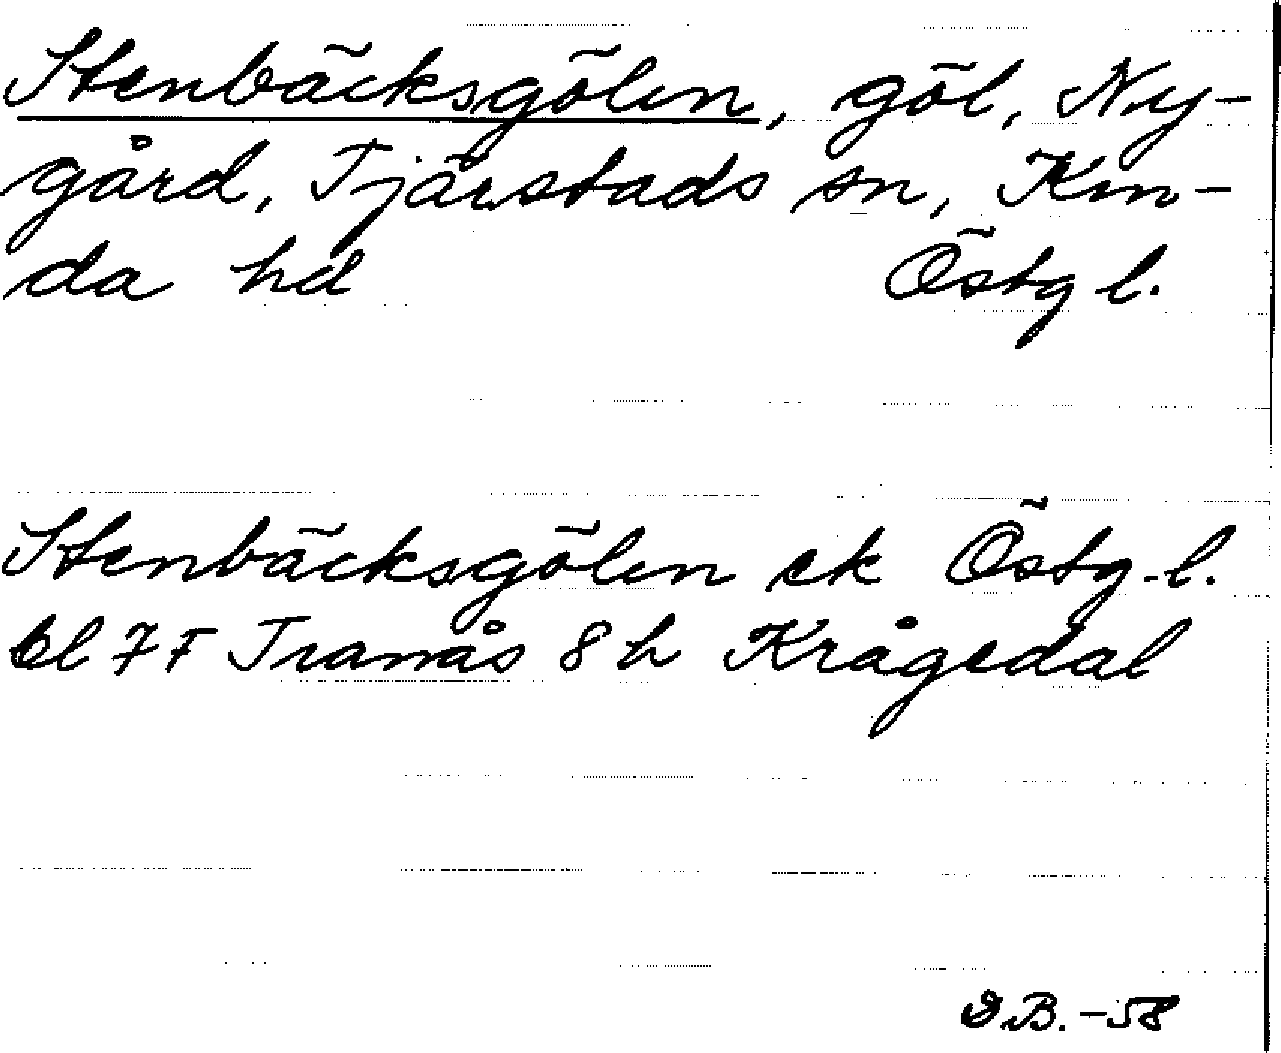 Stenbäcksgölen, göl, Ny-
gård, Tjärstads sn, Kin-
da hd Östg l.
Stenbäcksgölen ek Östg. l.
bl 7 F Tranås 8 h Krågedal
D.B. -58